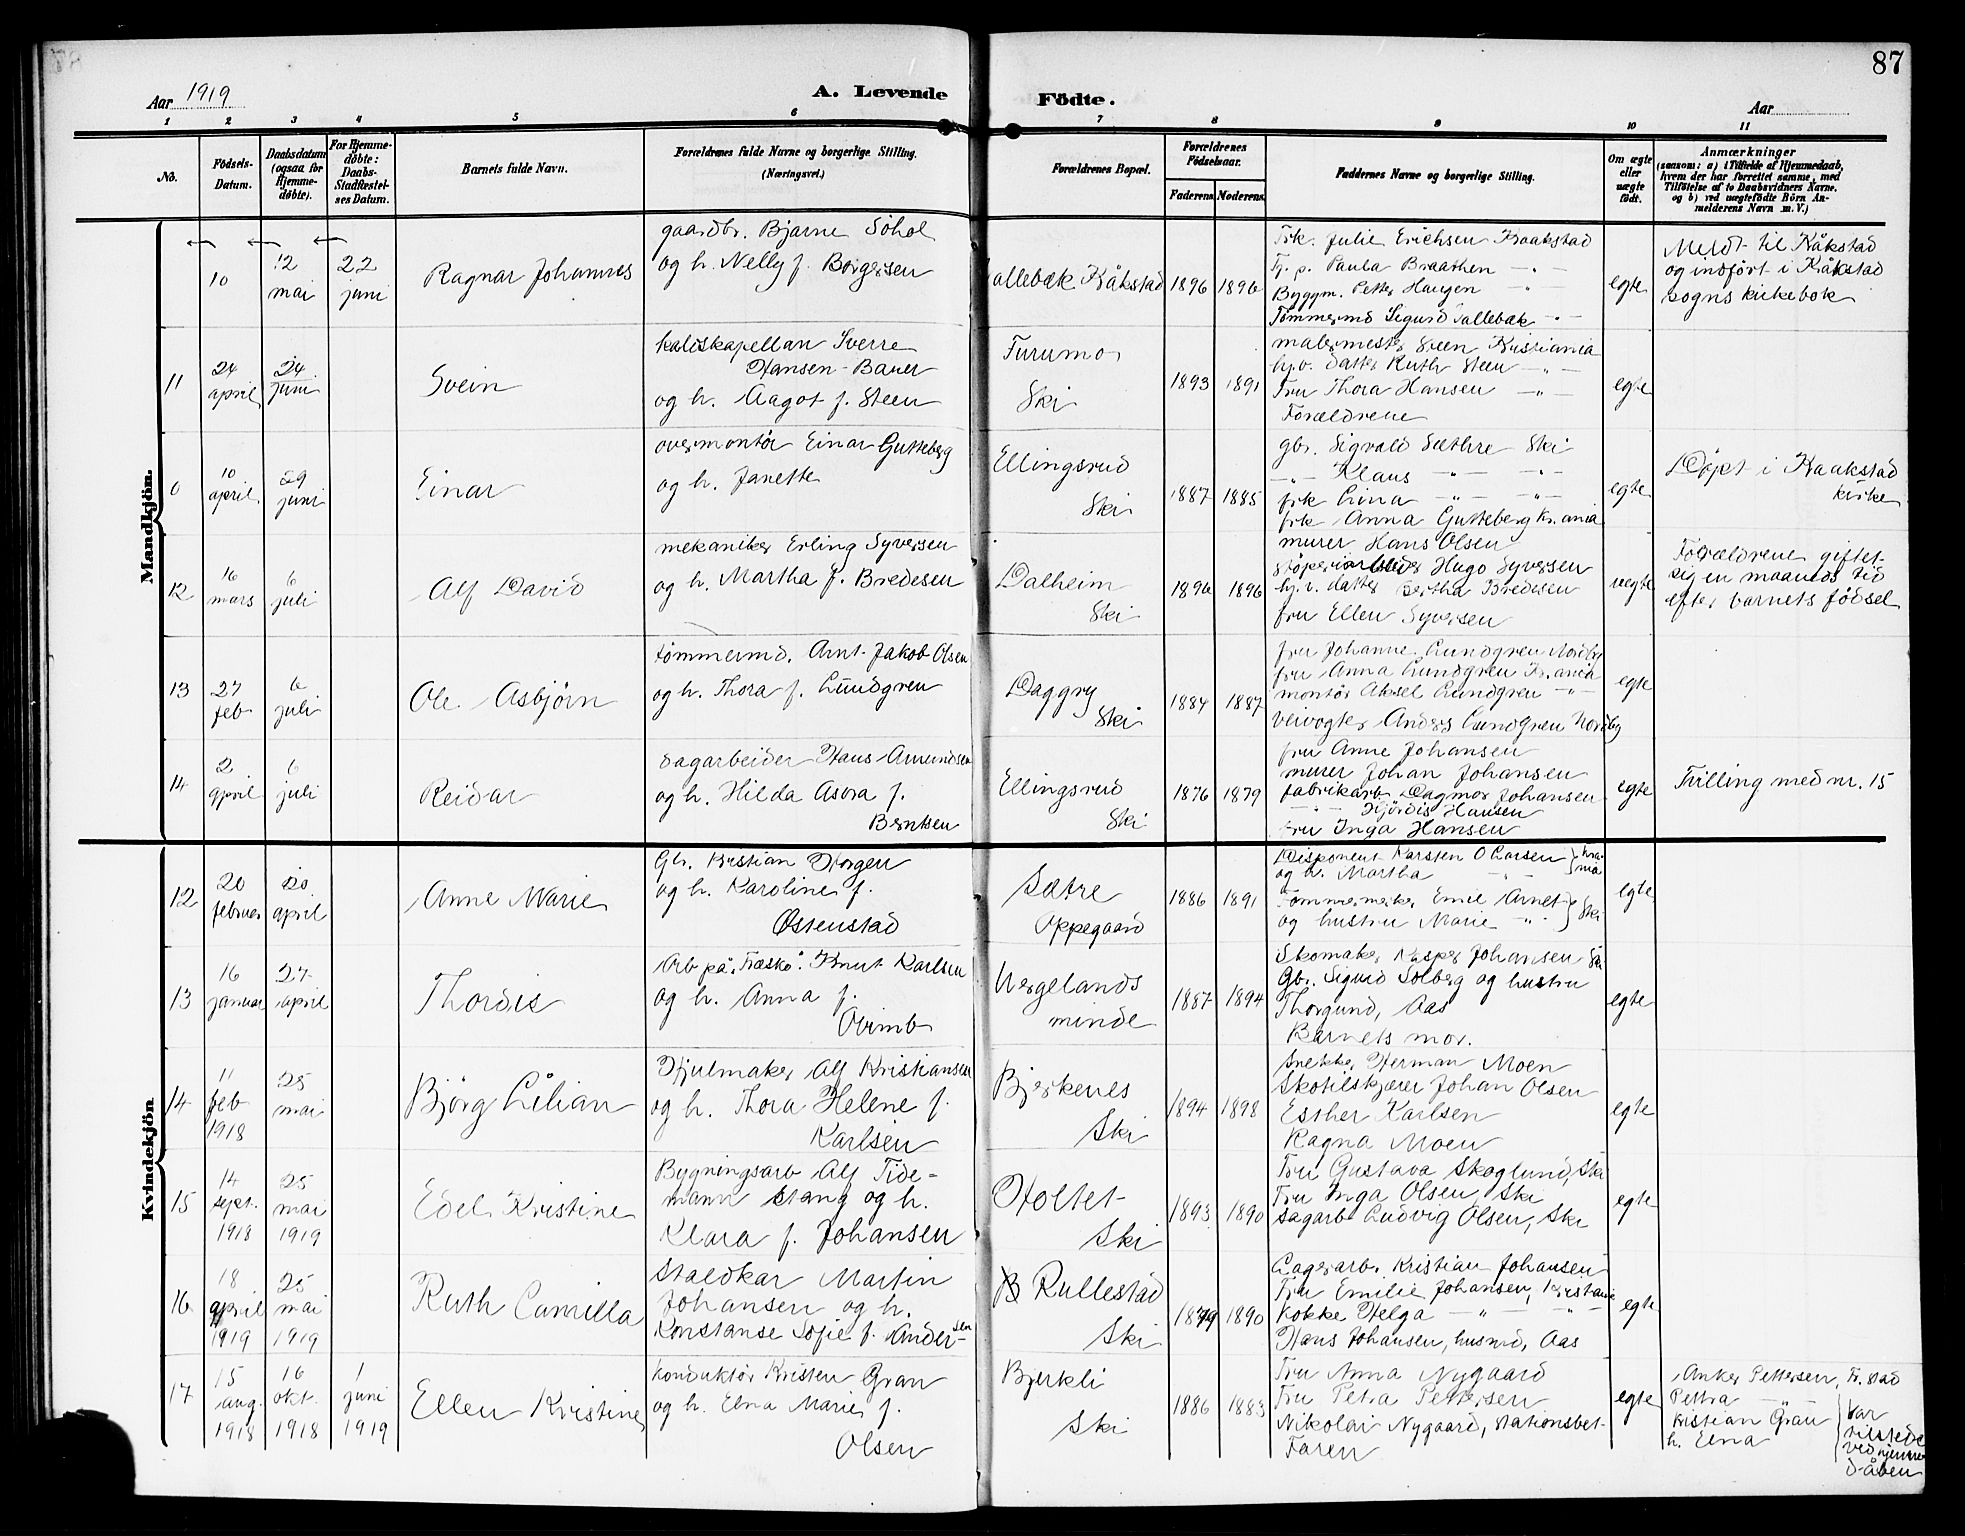 87
Aar 1919
A. Levende
Födte.
Aar
1 2 3 4 5 6 7 8 9 10 11
No.
Födsels-
Datum.
Daabsdatum
(ogsaa for
Hjemme-
døbte).
For Hjemme-
døbte:
Daabs-
Stadfæstel-
ses Datum.
Barnets fulde Navn.
Forældrenes fulde Navne og borgerlige Stilling.
(Næringsvei.)
Forældrenes Bopæl.
Forældrenes
Födselsaar.
Faderens Moderens
Faddernes Navne og borgerlige Stilling.
Om ægte
eller
uægte
født.
Anmærkninger
(saasom: a) i Tilfælde af Hjemmedaab,
hvem der har forrettet samme, med
Tilföielse af to Daabsvidners Navne.
og b) ved uægtefødte Börn An-
melderens Navn m. V.)
Mandkjön.
10
12
mai
22
juni
Ragnar Johannes
gaardbr. Bjarne Sôhol
og h. Nelly f. Borgersen
Kåkstad
1896 1896
Frk. Julie Erichsen Kraakstad
Tj. p. Paula Braathen - " -
Byggm. Petter Haugen - " -
Tømmermd Sigurd Sallebæk - " -
egte
Meldt til Kåkstad
og indfört i Kåkstad
sogns kirkebok
11
24
april
24
juni
Svein
kaldskapellan Sverre
Hansen-Bauer
og h. Aagot f. Steen
Furumo
Ski
1893 1891
malermester Steen Kristiania
hj.v. datter Ruth Steen - " -
Fru Thora Hansen - " -
Forældrene
egte
0
10
april
29
juni
Einar
overmontör Einar Gutteberg
og h. Janette
Ellingsrud
Ski
1887 1885
gbr. Sigvald Sæthre Ski
- " - Klaus - " - - " -
frk Lina - " - - " -
frk Anna Gutteberg Kr.ania
egte
Döpt i Kraakstad
kirke
12
16
mars
6
juli
Alf David
mekaniker Erling Syversen
og h. Martha f. Bredesen
Dalheim
Ski
1896 1896
murer Hans Olsen
støperiarbeider Hugo Syversen
hj. v. datter Bertha Bredesen
fru Ellen Syversen
uegte
Forældrene giftet
sig en maaneds tid
efter barnets födsel
13
27
feb
6
juli
Ole Asbjörn
tömmermd. Arnt Jakob Olsen
og h. Thora f. Lundgren
Daggry
Ski
1884 1887
fru Johanne Lundgren Nordby
fru Anna Lundgren Kr.ania
montör Aksel Lundgren - " -
veivogter Anders Lundgren Nordby
egte
14
2
april
6
juli
Reidar
sagarbeider Hans Amundsen
og h. Hilda Asora f.
Berntsen
Ellingsrud
Ski
1876 1879
fru Anne Johansen
murer Johan Johansen
fabrikarb. Dagmar Johansen
- " - Hjördis Hansen
fru Inga Hansen
egte
Tvilling med nr. 15
Kvindekjön
12
20
februar
20
april
Anne Marie
Gbr. Kristian Horgen
og h. Karoline f.
Østenstad
Sætre
Oppegaard
1886 1891
Disponent Karsten O Larsen
og h. Martha - " -
Tømmermerker Emil Arnet
og hustru Marie - " -
Ski
egte
13
16
januar
27
april
Thordis
Arb på "Træsko". Knut Karlsen
og h. Anna f.
Wergelands
minde
1887 1894
Skomaker Kasper Johansen Ski
Gbr. Sigurd Solberg og hustru
Thorgund, Aas
Barnets mor.
egte
14
11
feb
1918
25
mai
Björg Lilian
Hjulmaker Alf Kristiansen
og h. Thora Helene f.
Karlsen
Bjerkenes
Ski
1894 1898
Snekker Herman Moen
Skotilskjærer Johan Olsen
Esther Karlsen
Ragna Moen
egte
15
14
sept.
1918
25
mai
1919
Edel Kristine
Bygningsarb Alf Tide-
mann Stang og h.
Klara f. Johansen
Holtet
Ski
1893 1890
Fru Gustava Skoglund, Ski
Fru Inga Olsen, Ski
Sagarb Ludvig Olsen, Ski
egte
16
18
april
1919
25
mai
1919
Ruth Camilla
Staldkar Martin
Johansen og h.
Konstanse Sofie f. Andersen
Rullestad
Ski
1879 1890
Lagerarb. Kristian Johansen
Fru Emilie Johansen, Kristania
Kokke Helga - " - - " -
Hans Johansen, husmd, Aas
egte
17
15
aug.
1918
16
okt.
1918
1
juni
1919
Ellen Kristine
Konduktör Kristen Gran
og h. Elna Marie f.
Olsen
Bjerkli
Ski
1886 1883
Fru Anna Nygaard
Fru Petra Pettersen
Nikolai Nygaard, stationsbet-
Faren
egte
Anker Pettersen, Fr.stad
Petra - " -
Kristian Gran
h. Elna
var
tilstede
ved hjemme
dåben